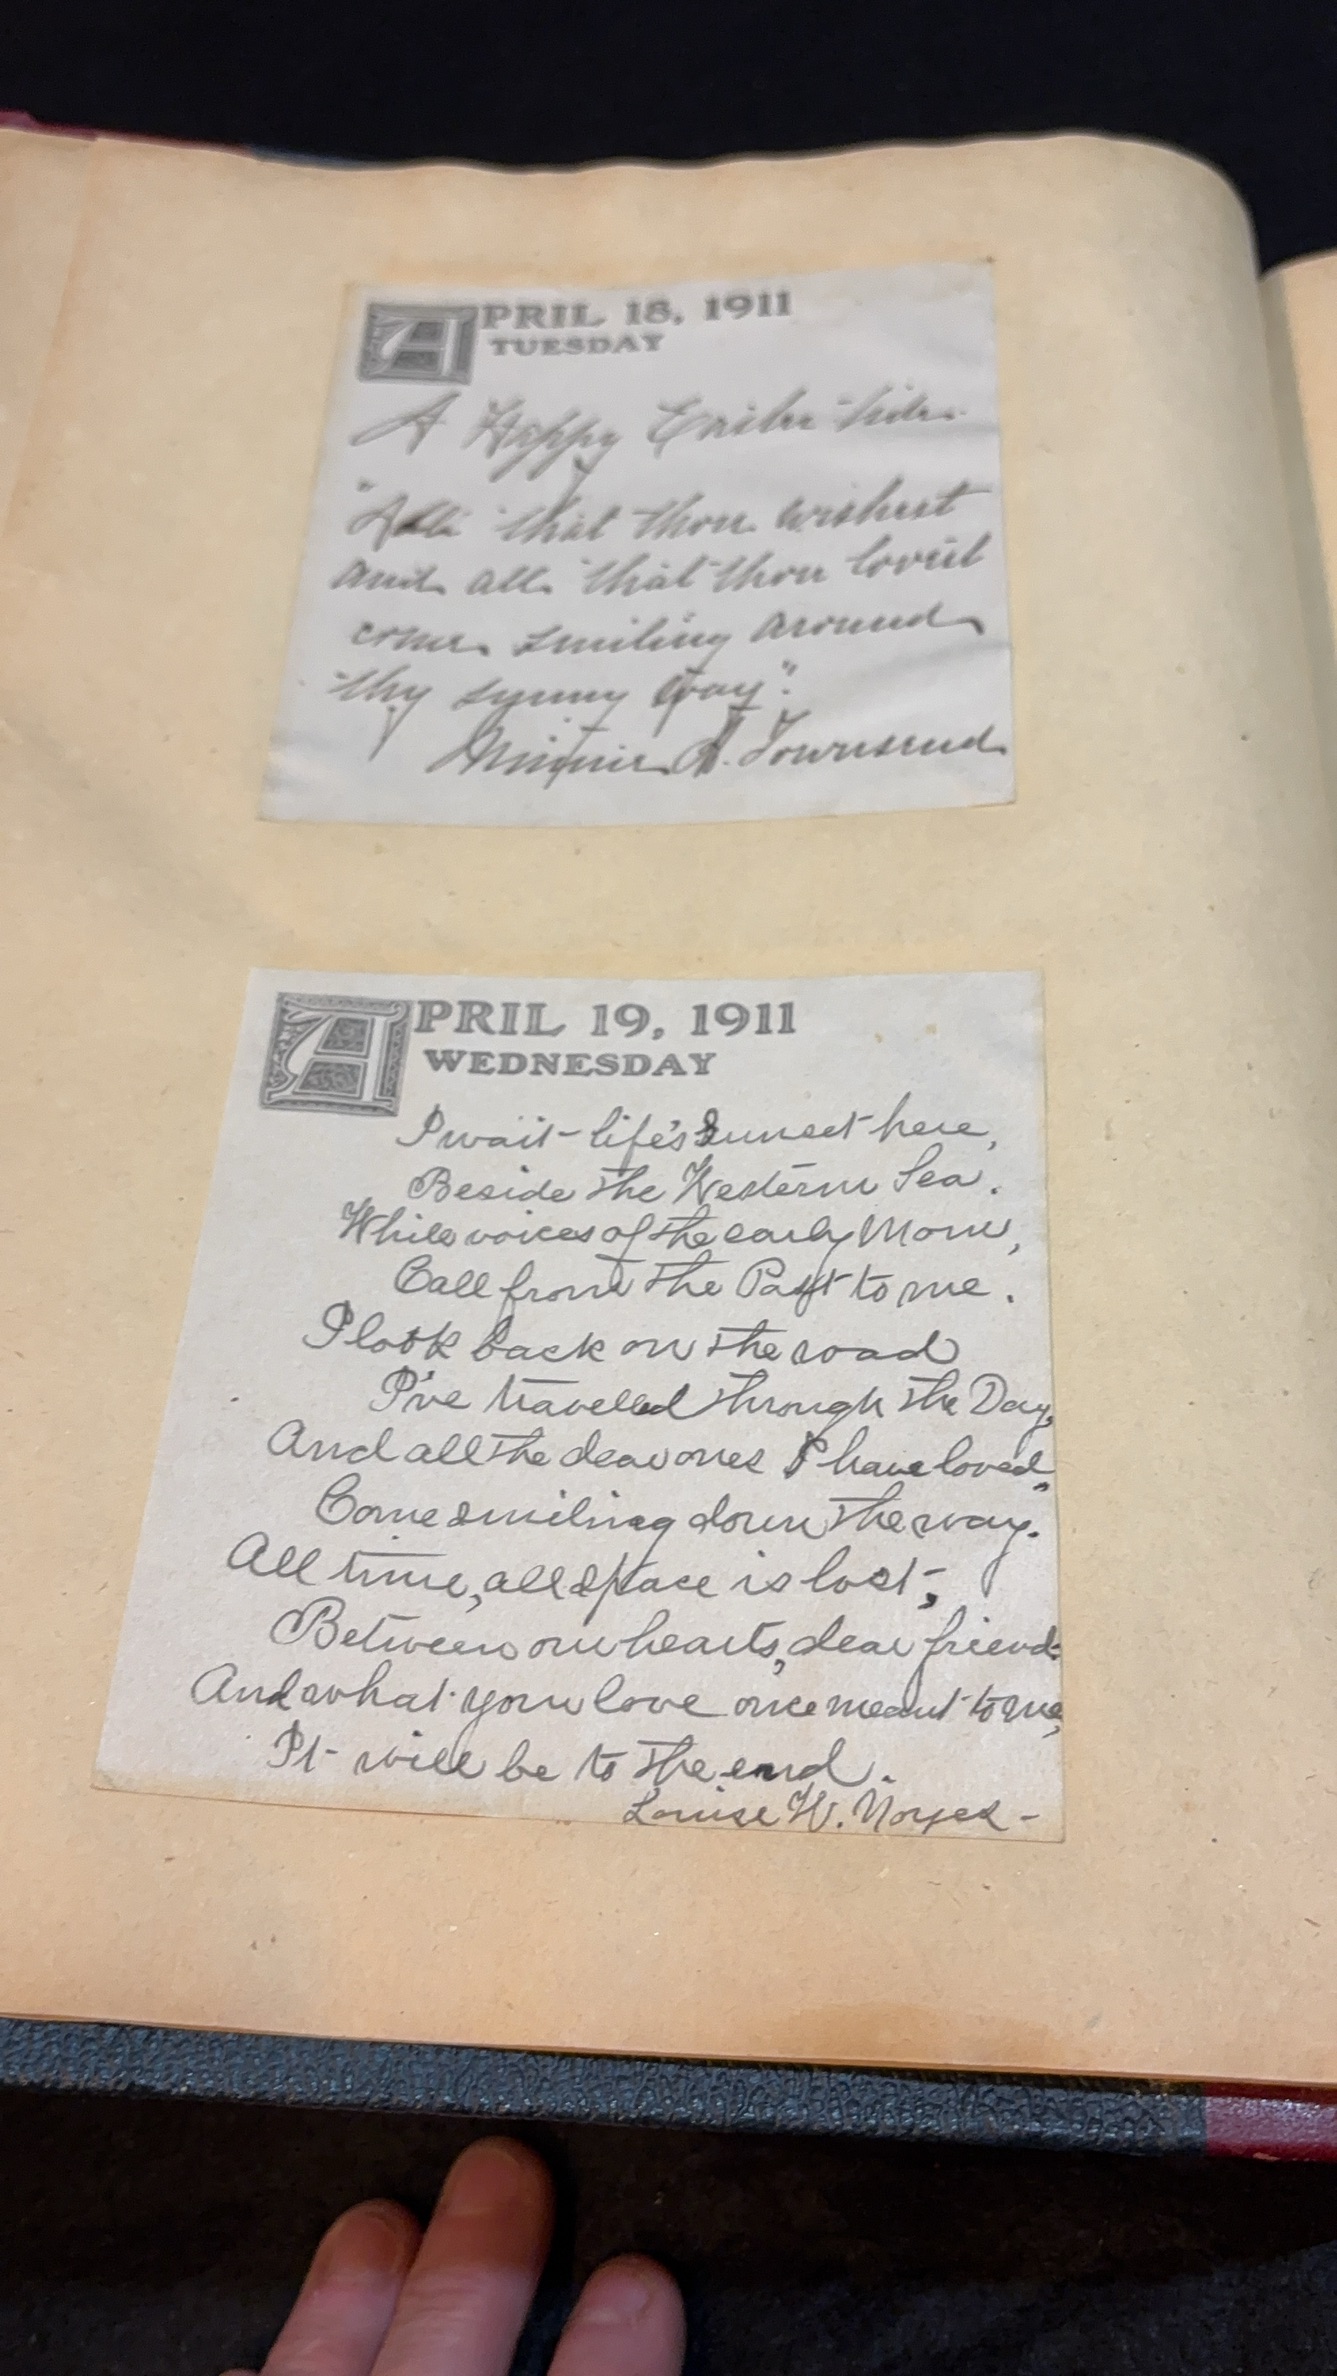 APRIL 18, 1911
TUESDAY
A Happy Easter tide.
"All that thou wishest
and all that thou lovest
come smiling around
thy sunny way".
Minnie A. Townsend
APRIL 19, 1911
WEDNESDAY
I wait life's Sunset here,
Beside the Western Sea.
While voices of the early Morn,
Call from the Past to me.
I look back on the road
I've travelled through the Day,
And all the dear ones I have loved,
Come smiling down the way.
All time, all space is lost,
Between our hearts, dear friend:
And what your love once meant to me,
It will be to the end.
Louise W. Noyes-